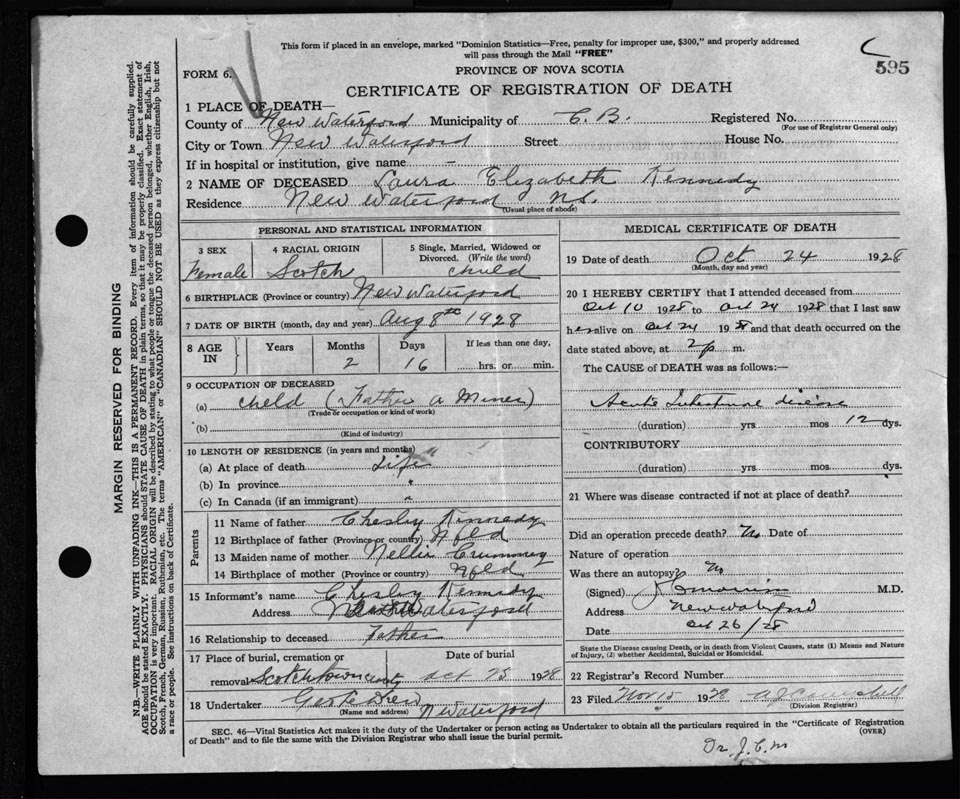 This form if placed in an envelope, marked "Dominion Statistics—Free, penalty for improper use, $300," and properly addressed
will pass through the Mail "FREE"
595
FORM 6.
PROVINCE OF NOVA SCOTIA
CERTIFICATE OF REGISTRATION OF DEATH
1 PLACE OF DEATH—
County of New Waterford Municipality of C. B. Registered No.
(For use of Registrar General only)
City or Town New Waterford Street House No.
If in hospital or institution, give name –
2 NAME OF DECEASED Laura Elizabeth Kennedy
Residence New Waterford N.S.
(Usual place of abode)
PERSONAL AND STATISTICAL INFORMATION
3 SEX 4 RACIAL ORIGIN 5 Single, Married, Widowed or Divorced. (Write the word)
Female Scotch child
6 BIRTHPLACE (Province or country) New Waterford
7 DATE OF BIRTH (month, day and year) Aug 8th 1928
8 AGE IN Years Months Days If less than one day,
2 16 hrs. or min.
9 OCCUPATION OF DECEASED
(a) child (Father a Miner)
(Trade or occupation or kind of work)
(b)
(Kind of industry)
10 LENGTH OF RESIDENCE (in years and months)
(a) At place of death Life
(b) In province "
(c) In Canada (if an immigrant) "
Parents
11 Name of father Chesley Kennedy
12 Birthplace of father (Province or country) Nfld
13 Maiden name of mother Nellie Crummey
14 Birthplace of mother (Province or country) Nfld
15 Informant's name Chesley Kennedy
Address Waterford
16 Relationship to deceased Father
17 Place of burial, cremation or removal Date of burial
Scotchtown Oct 25 1928
18 Undertaker Geo
(Name and address) N Waterford
MEDICAL CERTIFICATE OF DEATH
19 Date of death Oct 24 1928
(Month, day and year)
20 I HEREBY CERTIFY that I attended deceased from
Oct 10 1928 to Oct 24 1928 that I last saw
her alive on Oct 24 1928 and that death occurred on the
date stated above, at 2 p m.
The CAUSE of DEATH was as follows:—
Acute Intestinal disease
(duration) yrs. mos 12 dys.
CONTRIBUTORY
(duration) yrs. mos. dys.
21 Where was disease contracted if not at place of death?
Did an operation precede death? No Date of
Nature of operation
Was there an autopsy? No
(Signed) M.D.
Address New Waterford
Date Oct 26/28
State the Disease causing Death, or in death from Violent Causes, state (1) Means and Nature
of Injury, (2) whether Accidental, Suicidal or Homicidal.
22 Registrar's Record Number
23 Filed Nov 10 1928
(Division Registrar)
SEC. 46—Vital Statistics Act makes it the duty of the Undertaker or person acting as Undertaker to obtain all the particulars required in the "Certificate of Registration
of Death" and to file the same with the Division Registrar who shall issue the burial permit.
(OVER)
Dr. J. C. M
MARGIN RESERVED FOR BINDING
N.B.—WRITE PLAINLY WITH UNFADING INK—THIS IS A PERMANENT RECORD. Every item of information should be carefully supplied.
AGE should be stated EXACTLY. PHYSICIANS should STATE CAUSE OF DEATH in plain terms, so that it may be properly classified. Exact statement of
OCCUPATION is very important. RACIAL ORIGIN will be described by stating to what people or tongue the deceased person belonged, whether English, Irish,
Scotch, French, German, Russian, Ruthenian, etc. The terms "AMERICAN" or "CANADIAN" SHOULD NOT BE USED as they express citizenship but not
a race or people. See instructions on back of Certificate.